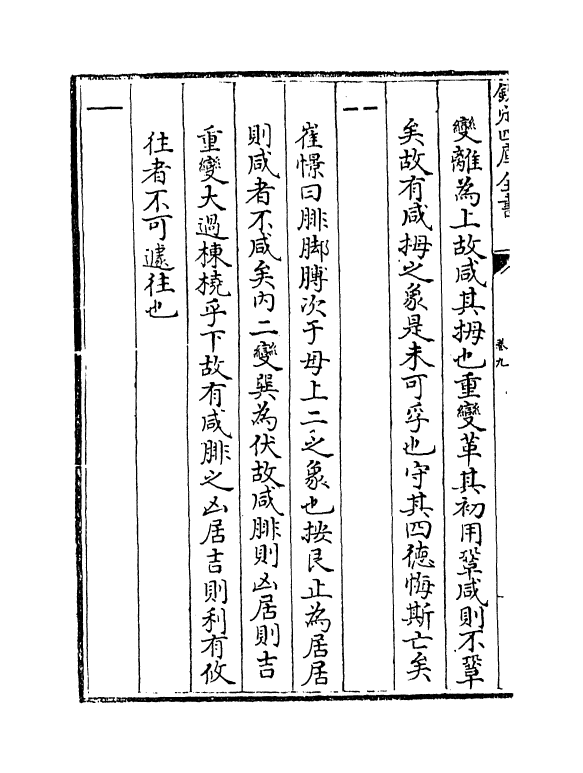 欽定四庫全書
卷九
變離為上故咸其拇也重變革其初用鞏咸則不鞏
矣故有咸拇之象是未可孚也守其四德悔斯亡矣
崔憬曰腓脚膊次于母上二之象也按艮止為居居
則咸者不咸矣内二變巽為伏故咸腓則凶居則吉
重變大過棟橈乎下故有咸腓之凶居吉則利有攸
往者不可遽往也